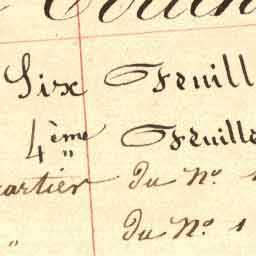 Six Feuill
4ème Feuille
cartier du No. 1
" du No. 1